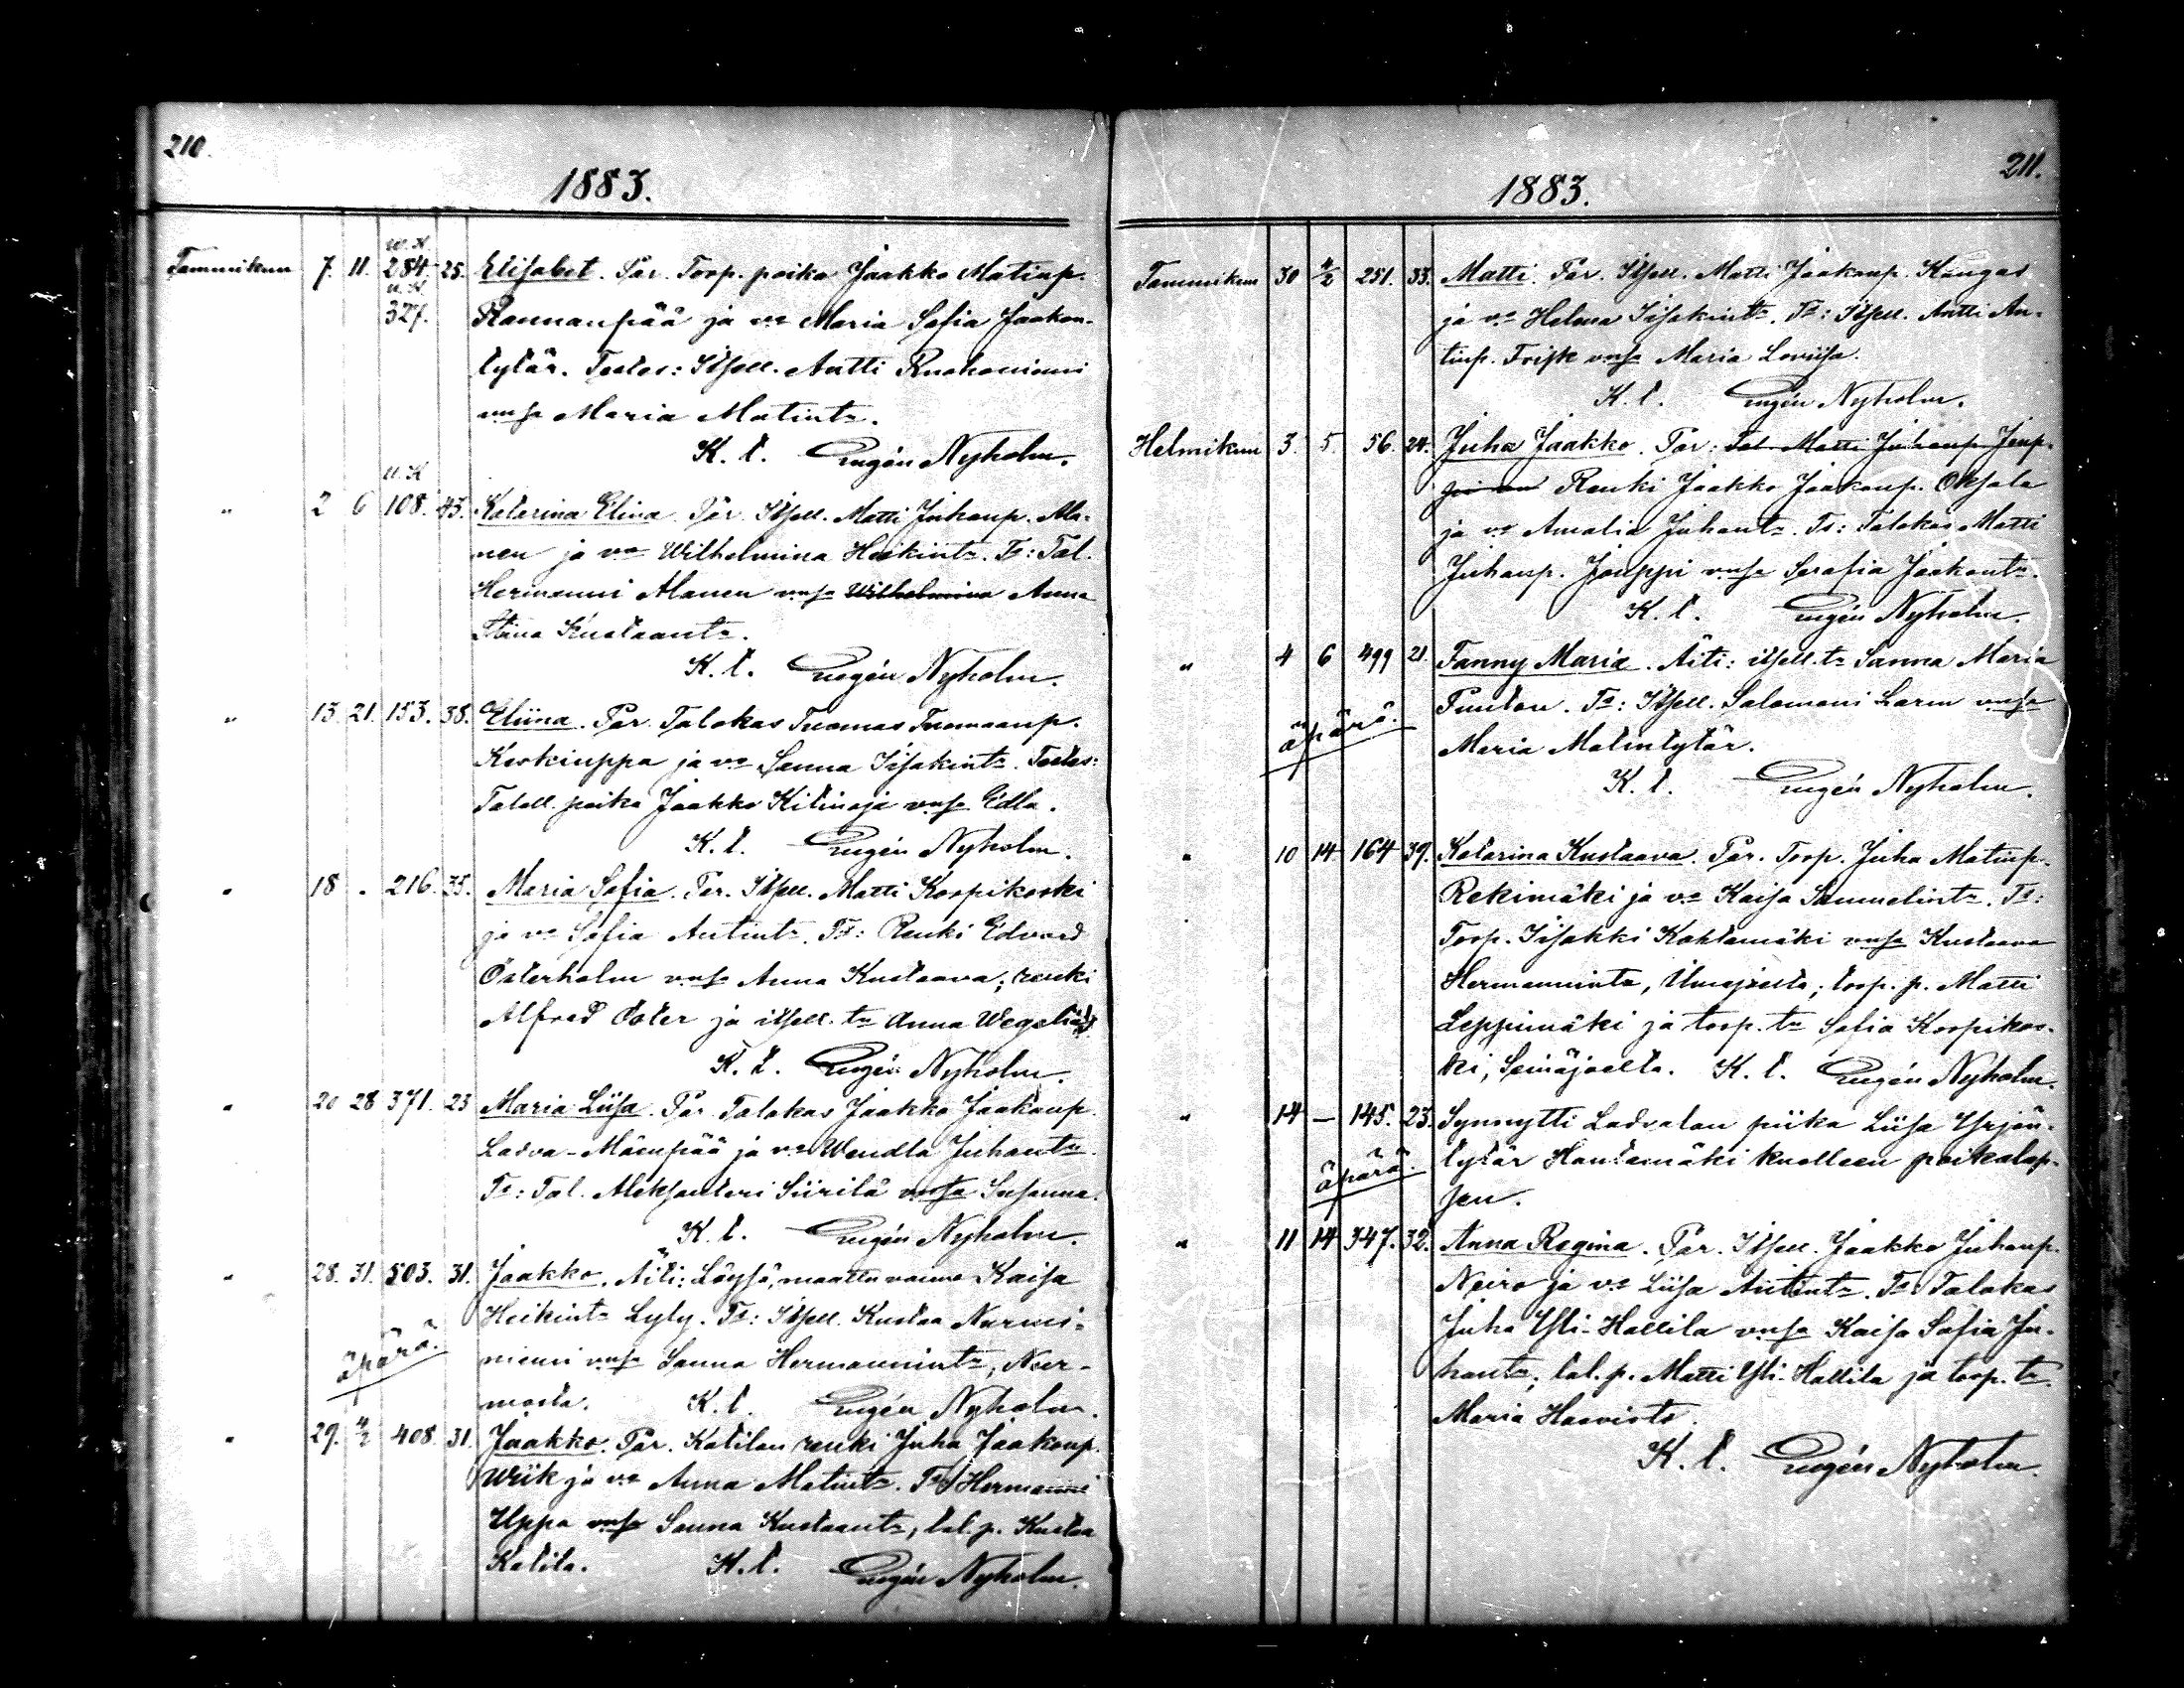 210.
1883.
w. K.
Tammikuun 7. 11. 284. 25. Elisabet. Par. Torp. poika Jaakko Matinp.
u. K.
327. Rannanpää ja vo Maria Sofia Jaakon-
tytär. Testes: Itsell. Antti Ruohoniemi
vmsa Maria Matintr.
K. t. Eugén Nyholm.
u. K
" 2 6 108. 43. Katarina Elina. Par. Itsell. Matti Juhanp. Ala-
nen ja vo Wilhelmina Heikintr. Ts: Tal.
Hermanni Alanen vmsa Wilhelmina Anna
Stina Kustaantr.
K. t. Eugén Nyholm.
" 13. 21. 153. 38. Eliina. Par. Talokas Tuomas Tuomaanp.
Keskiuppa ja vo Sanna Iisakintr. Testes:
Talell. poika Jaakko Kitinoja vmsa Edla.
K. t. Eugén Nyholm.
" 18 " 216. 35. Maria Sofia. Par. Itsell. Matti Korpikoski
ja vo Sofia Antintr. Ts: Renki Edvard
Österholm vmsa Anna Kustaava; renki
Alfred Öster ja itsell. tr Anna Wegelius
K. t. Eugén Nyholm.
" 20 28 371. 23 Maria Liisa. Par. Talokas Jaakko Jaakonp.
Ladva-Mäenpää ja vo Wendla Juhantr.
Ts: Tal. Aleksanteri Siirilä vmsa Susanna.
K. t. Eugén Nyholm.
" 28. 31. 503. 31. Jaakko. Äiti: Löysä, maattu vaimo Kaisa
Heikintr Lyly. Ts: Itsell. Kustaa Nurmi-
äpärä. niemi vmsa Sanna Hermannintr, Nur-
mosta. K. t. Eugén Nyholm.
" 29. 4/2 408. 31. Jaakko. Par. Katilan renki Juha Jaakonp.
Wiik ja vo Anna Matintr. Ts: Hermanni
Uppa vmsa Sanna Kustaantr, tal. p. Kustaa
Katila. K. t. Eugén Nyholm.
211.
1883.
Tammikuun 30 4/2 251. 33. Matti. Par. Itsell. Matti Jaakonp. Kangas
ja vo Helena Iisakintr. Ts: Itsell. Antti An-
tinp. Frisk vmsa Maria Loviisa.
K. t. Eugén Nyholm.
Helmikuun 3. 5. 56. 24. Juha Jaakko. Par: Tal. Matti Juhanp. Joup-
pi Renki Jaakko Jaakonp. Oksala
ja vo Amalia Juhantr. Ts: Talokas Matti
Juhanp. Jouppi vmsa Serafia Jaakontr.
K. t. Eugén Nyholm.
" 4 6 499 21. Fanny Maria. Äiti: itsell. tr Sanna Maria
äpärä. Ts: Itsell. Salomoni Larm vmsa
Maria Matintytär.
K. t. Eugén Nyholm.
" 10 14 164 39. Katarina Kustaava. Par. Torp. Juha Matinp.
Rekimäki ja vo Kaisa Samuelintr. Ts:
Torp. Iisakki Kohtamäki vmsa Kustaava
Hermannintr, Ilmajoelta; torp. p. Matti
Leppimäki ja torp. tr Sofia Korpikos-
ki, Seinäjoelta. K. t. Eugén Nyholm.
" 14 – 145. 23. Synnytti Ladvalan piika Liisa Yrjön-
äpärä. tytär Hautamäki kuolleen poikalap-
sen.
" 11 14 347. 32. Anna Regina. Par. Itsell. Jaakko Juhanp.
Neiro ja vo Liisa Antintr. Ts: Talokas
Juha Yli-Hallila vmsa Kaisa Sofia Ju-
hantr; tal. p. Matti Yli-Hallila ja torp. tr
Maria Haavisto.
K. t. Eugén Nyholm.